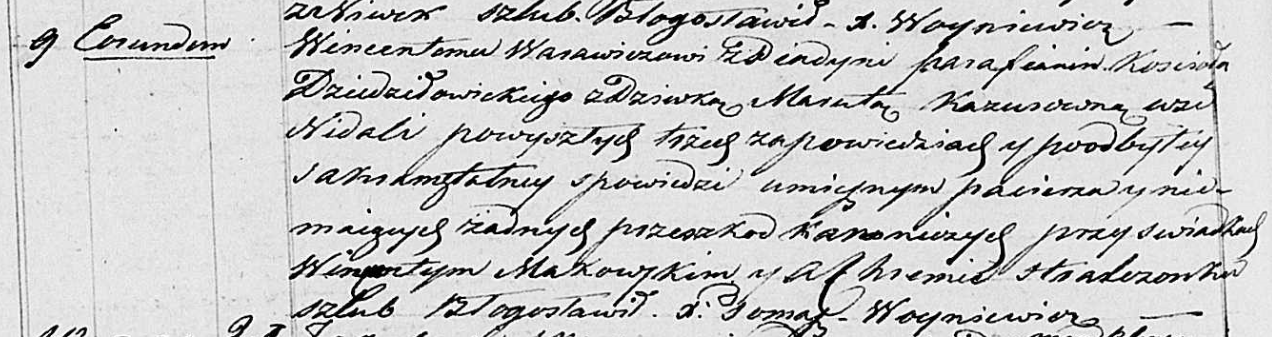 zNiwek szlub Błogosławił. x. Woyniewicz —
9 Eorundem Wincentemu Warawiczowi zDiadyni parafianin Kościoła
Dziedziłowickiego zDziewką Marutą Kazusowną wsi
Nidali powyszłych trzech zapowiedziach y poodbyłey
sakramętalney spowiedzi umieynym pacierza y nie-
maiących żadnych przeszkod kanonicznych przy swiadkach
Wincętym Makowskim y Achremie
szlub Błogosławił. x. Tomasz Woyniewicz —